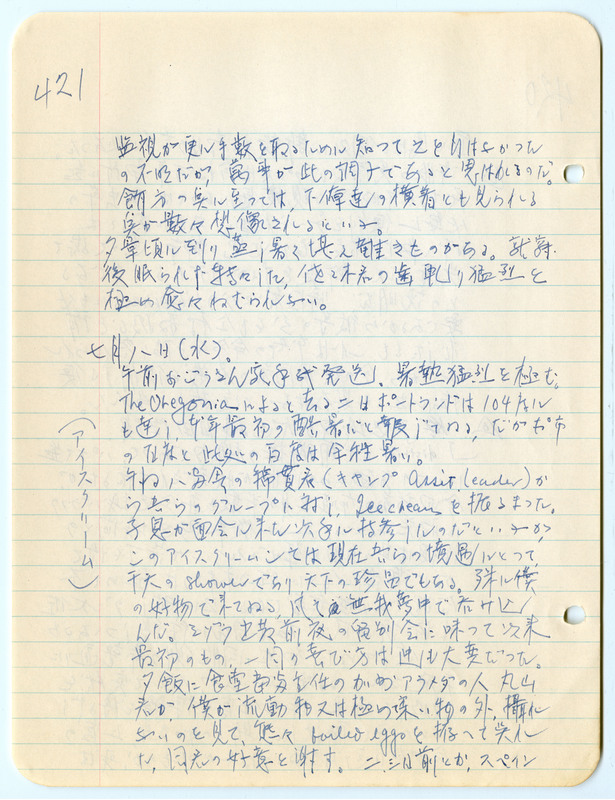 421
監視が更に手数を取るために知って之をりはよかった
の不明だが 萬事が此の調子であると思はれるのだ。
館方の奥に至っては、下俥達の横着とも見られる
奥が数々想像されるといふ。
夕掌頃に到り蒸し暑く堪え難きものがある。就寝
後眠られず 佐々木君の歯軋り猛烈を
極め愈々ねむられない。
七月八日(水)。
午前 おごうさん宛手紙発送、暑熱猛烈を極む。
The Oregonian によると去る二日ポートランドは104度に
も達し、本年最初の酷暑だと報じてゐる、だがポ市
の百度と此処の百度は余程暑い。
午ねに 君(キャンプ Assit. leader)か
ら吾らのグループに対し、Icecream を振るまった。
子息が面会に来た次手に持参したのだといふが、
このアイスクリームこそは現在吾らの境遇にとって、
干天の shower であり天下の珍品でもある。殊に僕
の好物で来てゐる、風で無我夢中で呑み込
んだ。ミゾラ出発前夜の送別会に味って以来
最初のもの、一同の喜び方は迚も大変だった。
夕飯に食堂部主任の アラメダの人 丸山
君が、僕が流動物又は極め柔い物の外、攝れ
ないのを見て、態々 boiled eggs を拵へて呉れ
た、同君の好意を謝す。二、三日前とか、スペイン
(アイスクリーム)